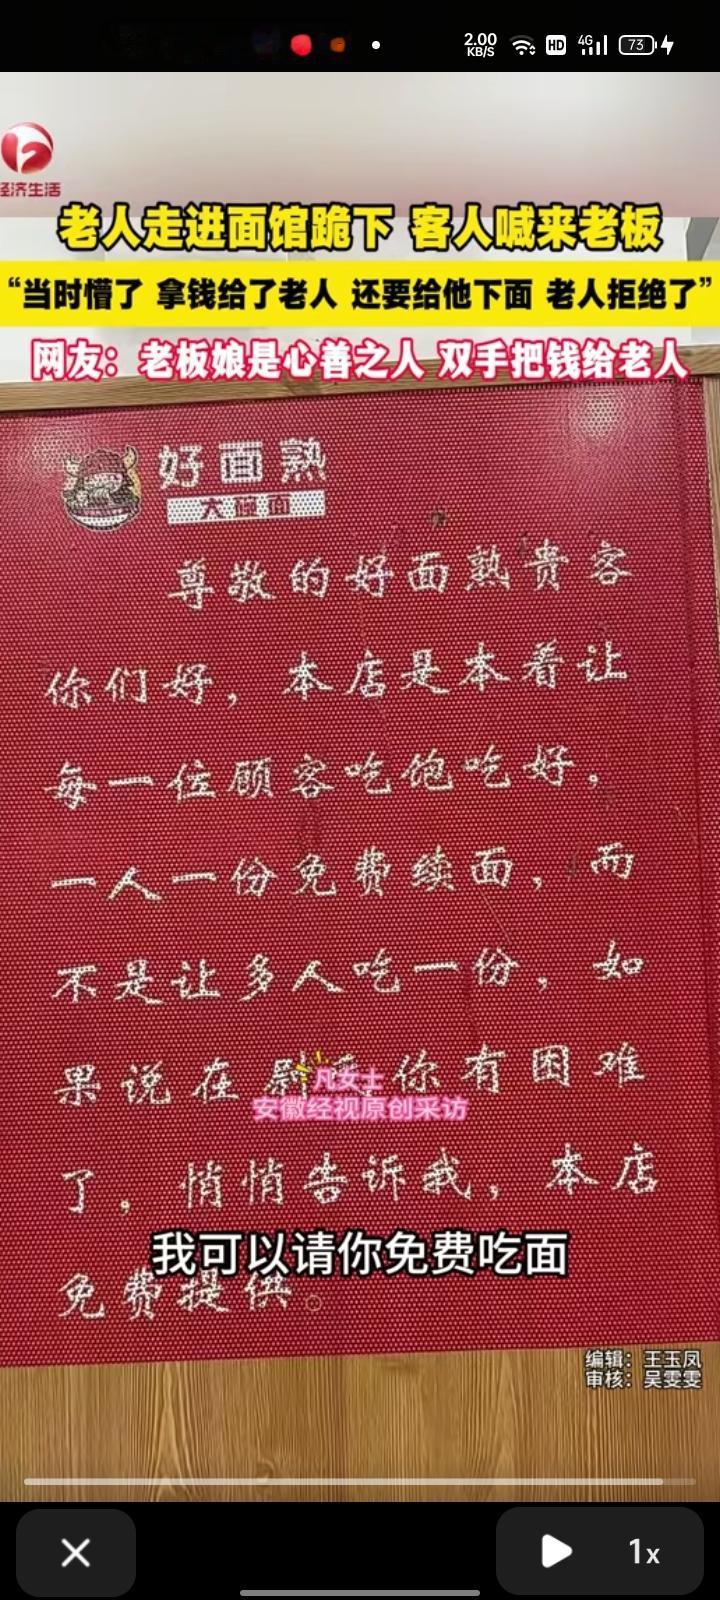 2.00
KB/S
HD
4G
73
经济生活
老人走进面馆跪下 客人喊来老板
“当时懵了 拿钱给了老人 还要给他下面 老人拒绝了”
网友：老板娘是心善之人 双手把钱给老人
好面熟
大碗面
尊敬的好面熟贵客
你们好，本店是本着让
每一位顾客吃饱吃好，
一人一份免费续面，而
不是让多人吃一份，如
果说在 你有困难
凡女士
安徽经视原创采访
了。悄悄告诉我，本店
我可以请你免费吃面
免费提供。
编辑：王玉凤
审核：吴雯雯
1x